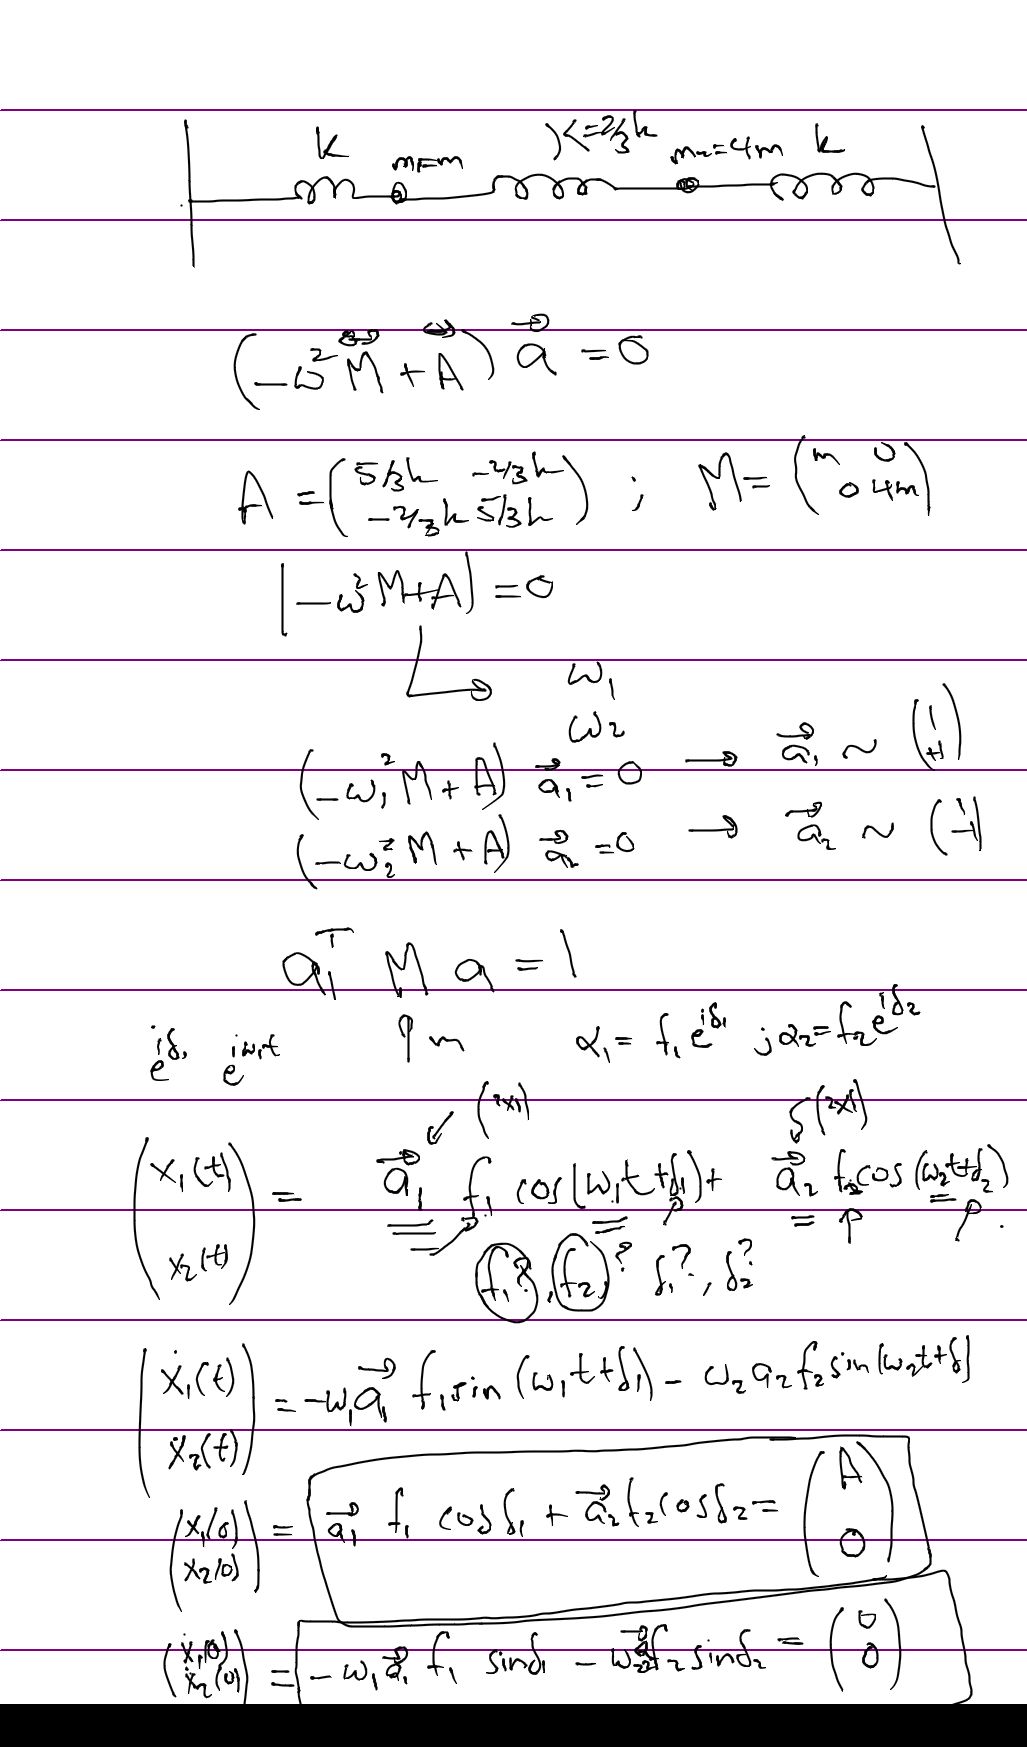 k m1=m K=2/3k m2=4m k
(-ω² M + A) a = 0
A = (5/3k -2/3k
-2/3k 5/3k) ; M = (m 0
0 4m)
|-ω² M+A| = 0
ω1
ω2
(-ω1² M + A) a1 = 0 → a1 ~ (1
+1)
(-ω2² M + A) a2 = 0 → a2 ~ (1
-1)
a1^T M a = 1
e^iδ1 e^iω1t m α1 = f1 e^iδ1 ; α2 = f2 e^iδ2
(2x1) (2x1)
(x1(t)
x2(t)) = a1 f1 cos(ω1t+δ1) + a2 f2 cos(ω2t+δ2)
f1?, f2,? δ1?, δ2?
(ẋ1(t)
ẋ2(t)) = -ω1 a1 f1 sin(ω1t+δ1) - ω2 a2 f2 sin(ω2t+δ)
(x1(0)
x2(0)) = a1 f1 cosδ1 + a2 f2 cosδ2 = (A
0)
(ẋ1(0)
ẋ2(0)) = -ω1 a1 f1 sinδ1 - ω2 a2 f2 sinδ2 = (0
0)